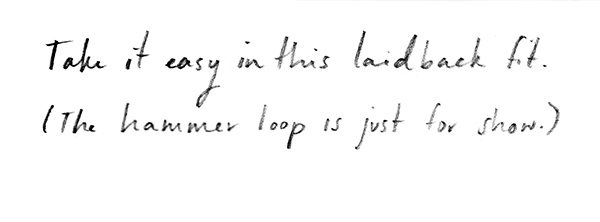 Take it easy in this laidback fit.
(The hammer loop is just for show.)